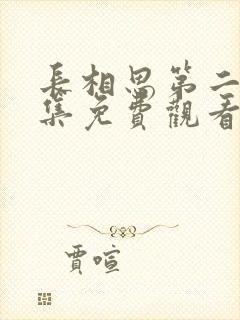 長相思第二
集免費觀看
賈喧